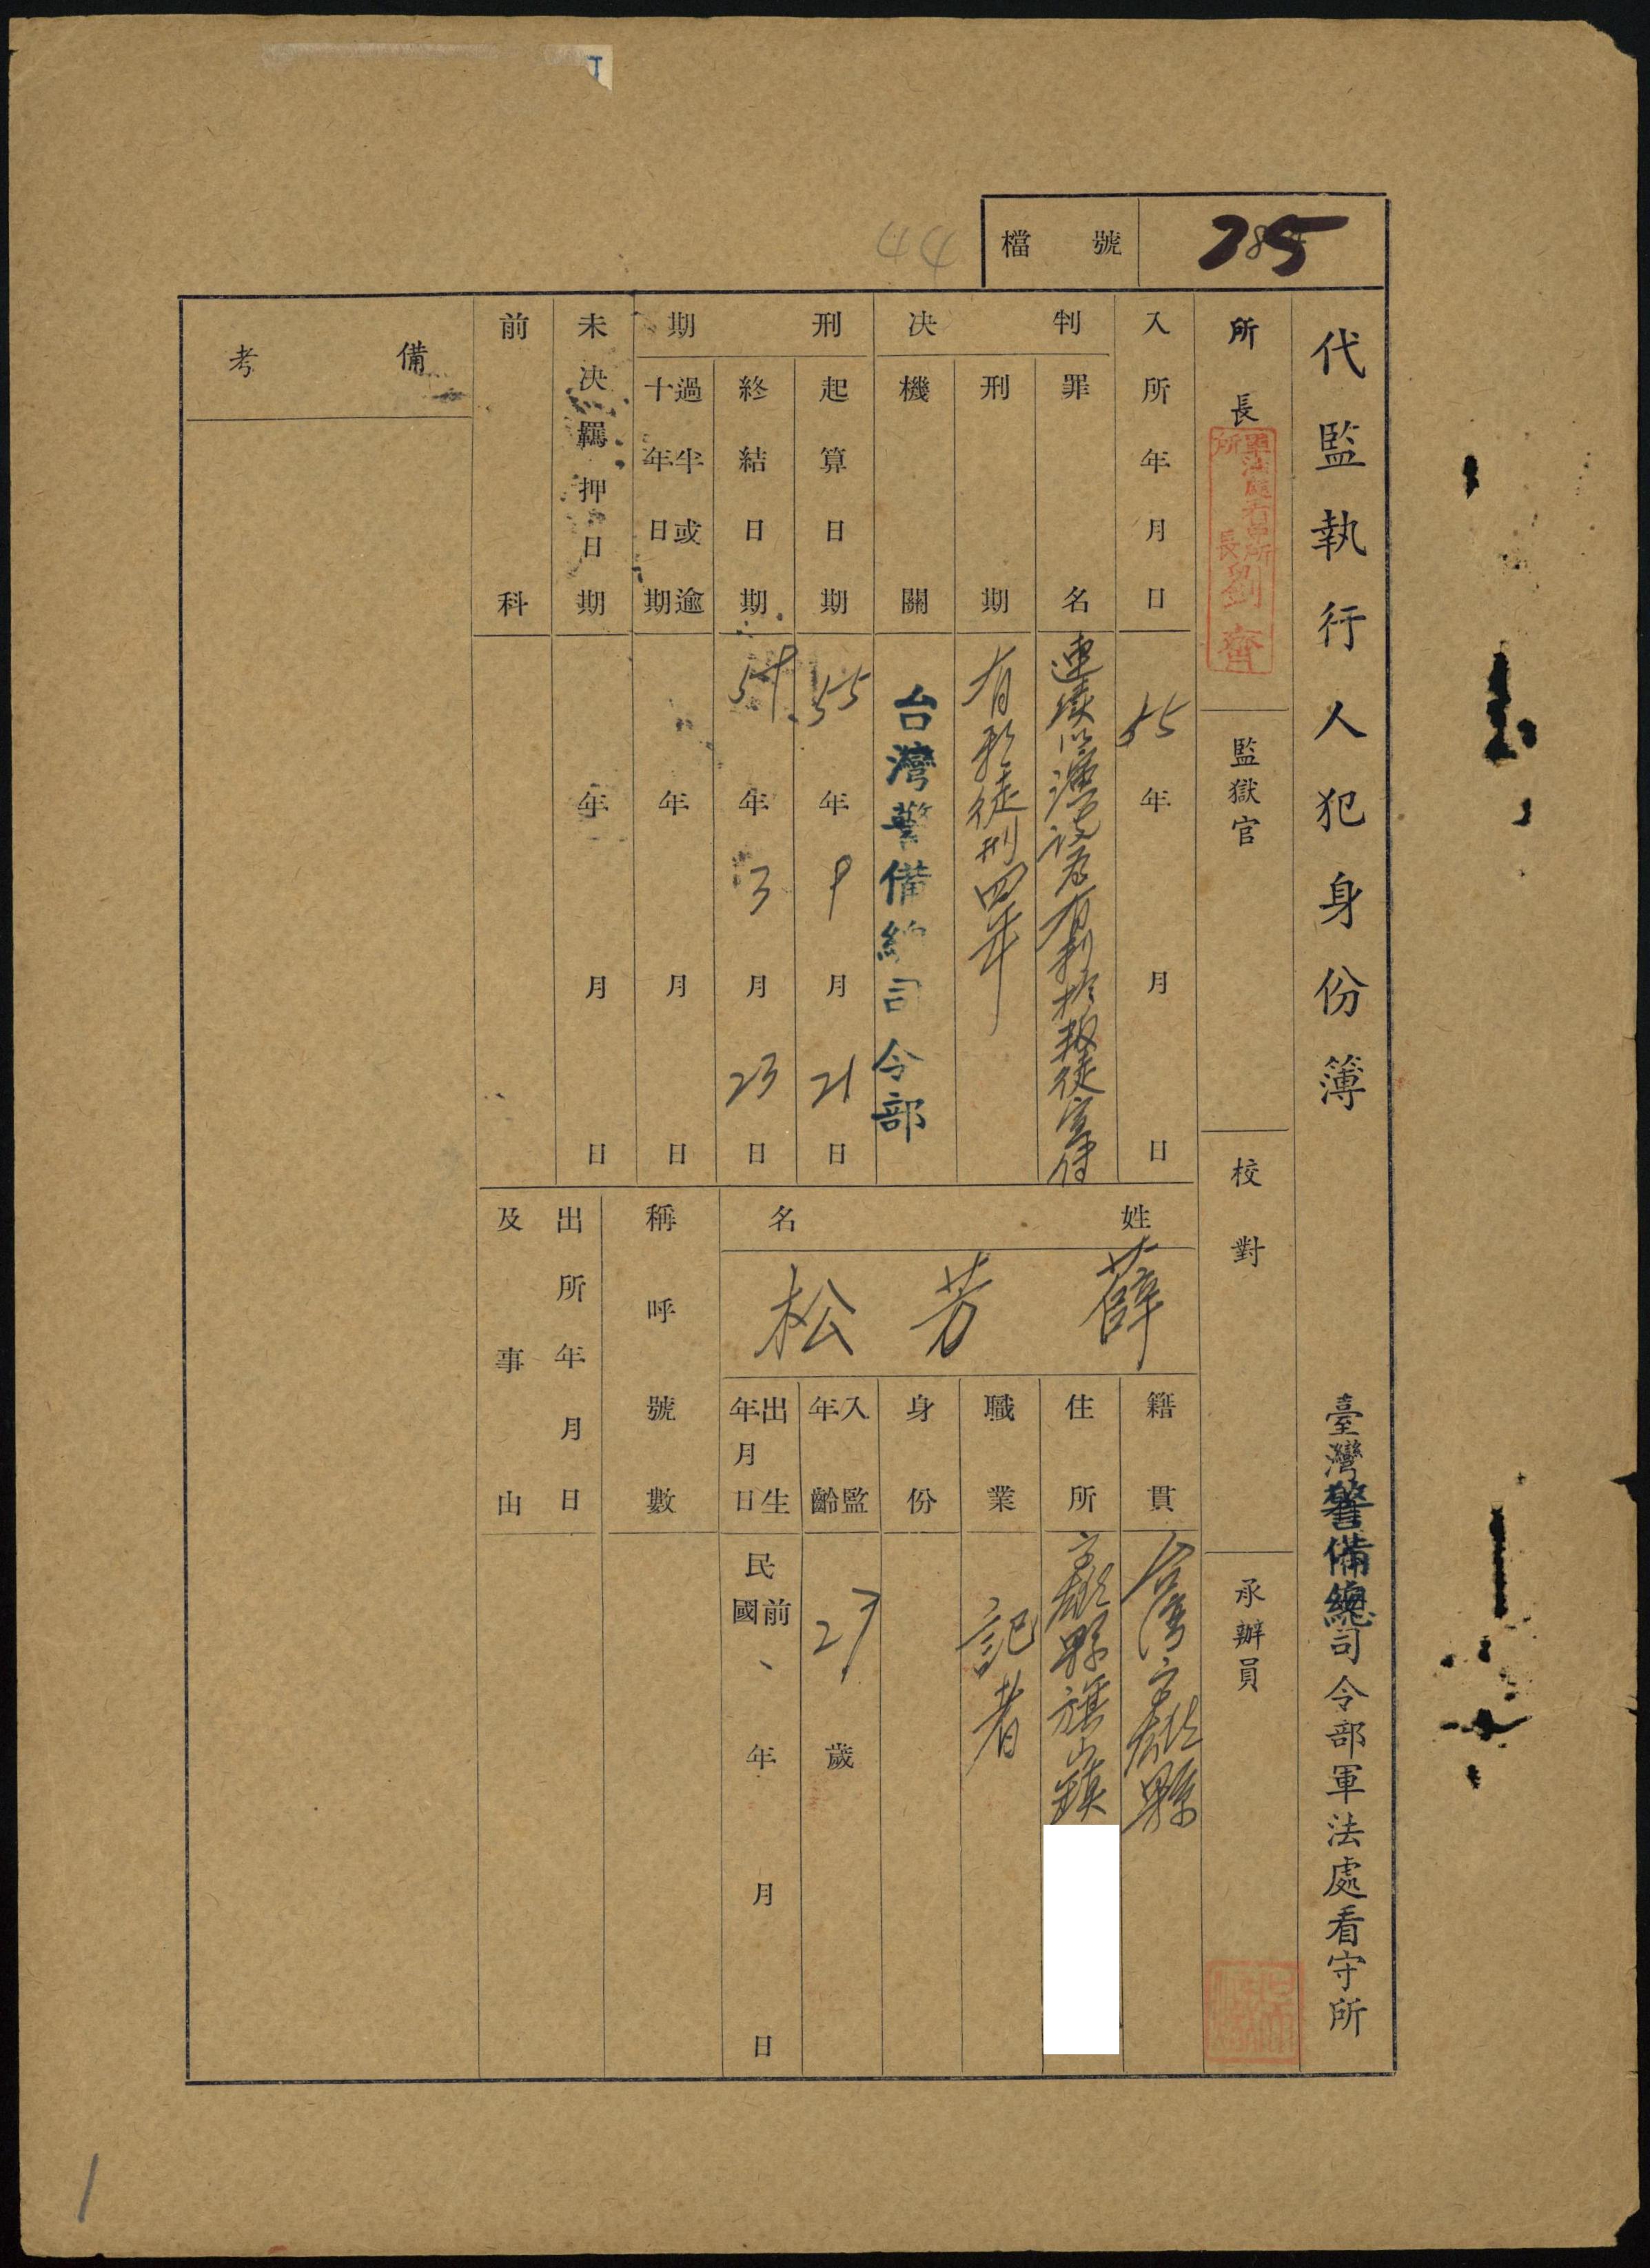 檔號
285
44
代監執行人犯身份簿
臺灣警備總司令部軍法處看守所
所長
軍法處看守所所長劉齊
監獄官
校對
承辦員
入所年月日
55年 月 日
判決
罪名
連續以演說為有利於叛徒宣傳
刑期
有期徒刑四年
機關
台灣警備總司令部
刑期
起算日期
55年9月21日
終結日期
59年3月23日
過半或逾十年日期
年 月 日
未決羈押日期
年 月 日
前科
備考
姓名
薛芳松
籍貫
台灣高雄縣
住所
高雄縣旗山鎮
職業
記者
身份
入監年齡
27歲
出生年月日
民國前、年 月 日
稱呼號數
出所年月日及事由
1